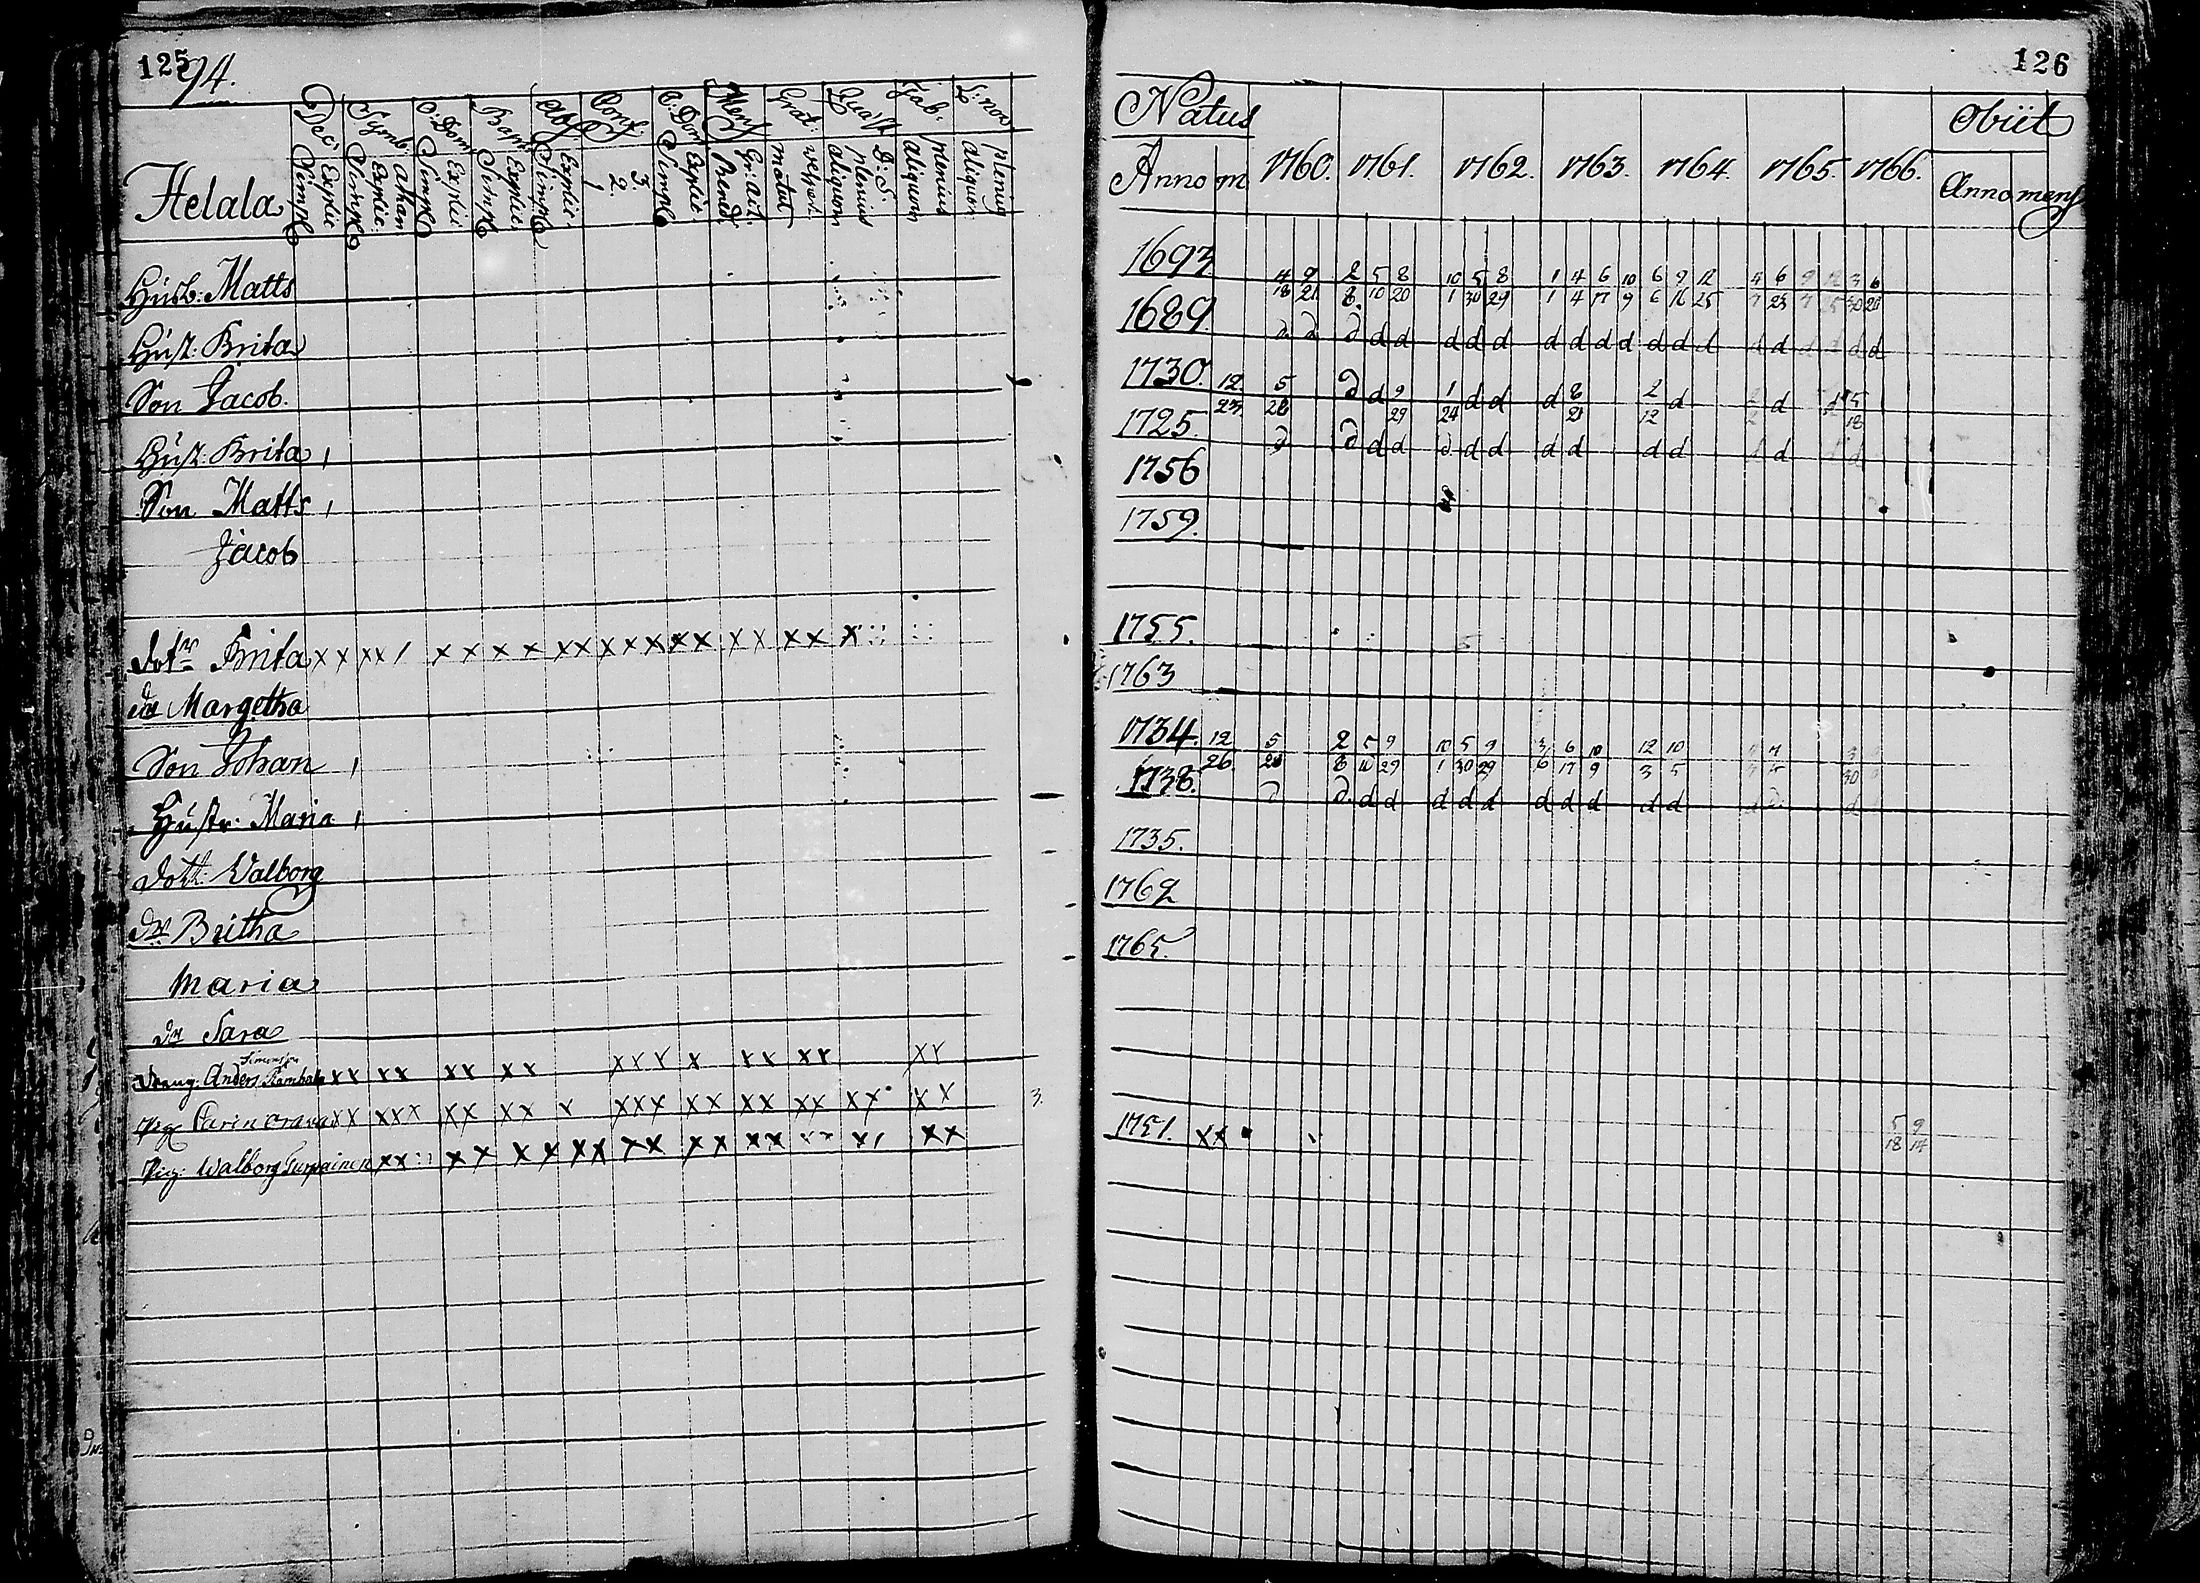 125
94.
Helala
Dec: Symb: O: Dom: Bapt: Abs Conf: C: Dom Mens Grat: Quæst D: S. Tab. L: nov
Simpl Explic Simpl Explic: Athan Simpl Explic: Simpl Explic: Simpl Explic 1 2. 3 Simpl Explic Bened Gr: Act: matut vespert aliquom plenius aliquom plenius aliquom plenius
Husb: Matts
Hust: Brita
Son Jacob.
Hust: Brita
Son Matts
Jacob
dotr Brita x x x x / x x x x x x x x x x x x x x x x
do Margetha
Son Johan
Hustr: Maria
dott: Valborg
do Britha
Maria
do Sara
Simonsson
Dreng: Anders x x x x x x x x x x x x x x x x x x
Carin x x x x x x x x x x x x x x x x x x x x x x x
3.
Pig: Walborg x x x x x x x x x x x x x x x x x x
126
Natus
Obiit
Anno m 1760. 1761. 1762. 1763. 1764. 1765. 1766. Anno mens
1693 14 9 2 5 8 10 5 8 1 4 6 10 6 9 12 4 6 9 12 3 6
18 21 8. 10 20 1 30 29 1 4 17 9 6 16 25 7 23 30 20
1689. d d d d d d d d d d d d d d d d d d d d d
1730. 12. 5 d d 9 1 d d d 8 2 d d 5
23. 28 29 24 21 12 18
1725. d d d d d d d d d d d d d d
1756
1759.
1755.
1763
1734. 12 5 2 5 9 10 5 9 3 6 10 12 10 3
26. 28 8 10 29 1 30 29 6 17 9 3 5 30
1738. d d. d d d d d d d d d d d d d
1735.
1762
1765.
1751. x x 5 9
18 14